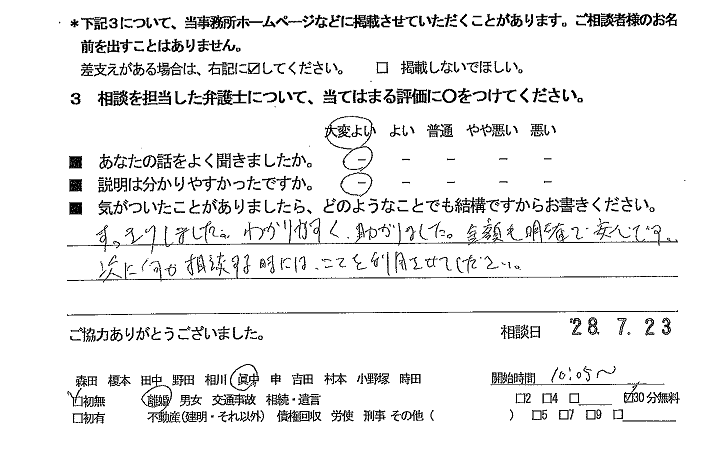 ＊下記３について、当事務所ホームページなどに掲載させていただくことがあります。ご相談者様のお名
前を出すことはありません。
差支えがある場合は、右記に☑してください。 □ 掲載しないでほしい。
３ 相談を担当した弁護士について、当てはまる評価に〇をつけてください。
大変よい よい 普通 やや悪い 悪い
■ あなたの話をよく聞きましたか。 － － － － －
■ 説明は分かりやすかったですか。 － － － － －
■ 気がついたことがありましたら、どのようなことでも結構ですからお書きください。
すっきりしました。わかりやすく、助かりました。金額も明確で安心です。
次に何か相談する時には、ここを利用させてください。
ご協力ありがとうございました。 相談日 '28.7.23
森田 榎本 田中 野田 相川 眞中 申 吉田 村本 小野塚 時田 開始時間 10:05～
☑初無 離婚 男女 交通事故 相続・遺言 □2 □4 □ ☑30分無料
□初有 不動産(建明・それ以外) 債権回収 労使 刑事 その他 ( ) □5 □7 □9 □